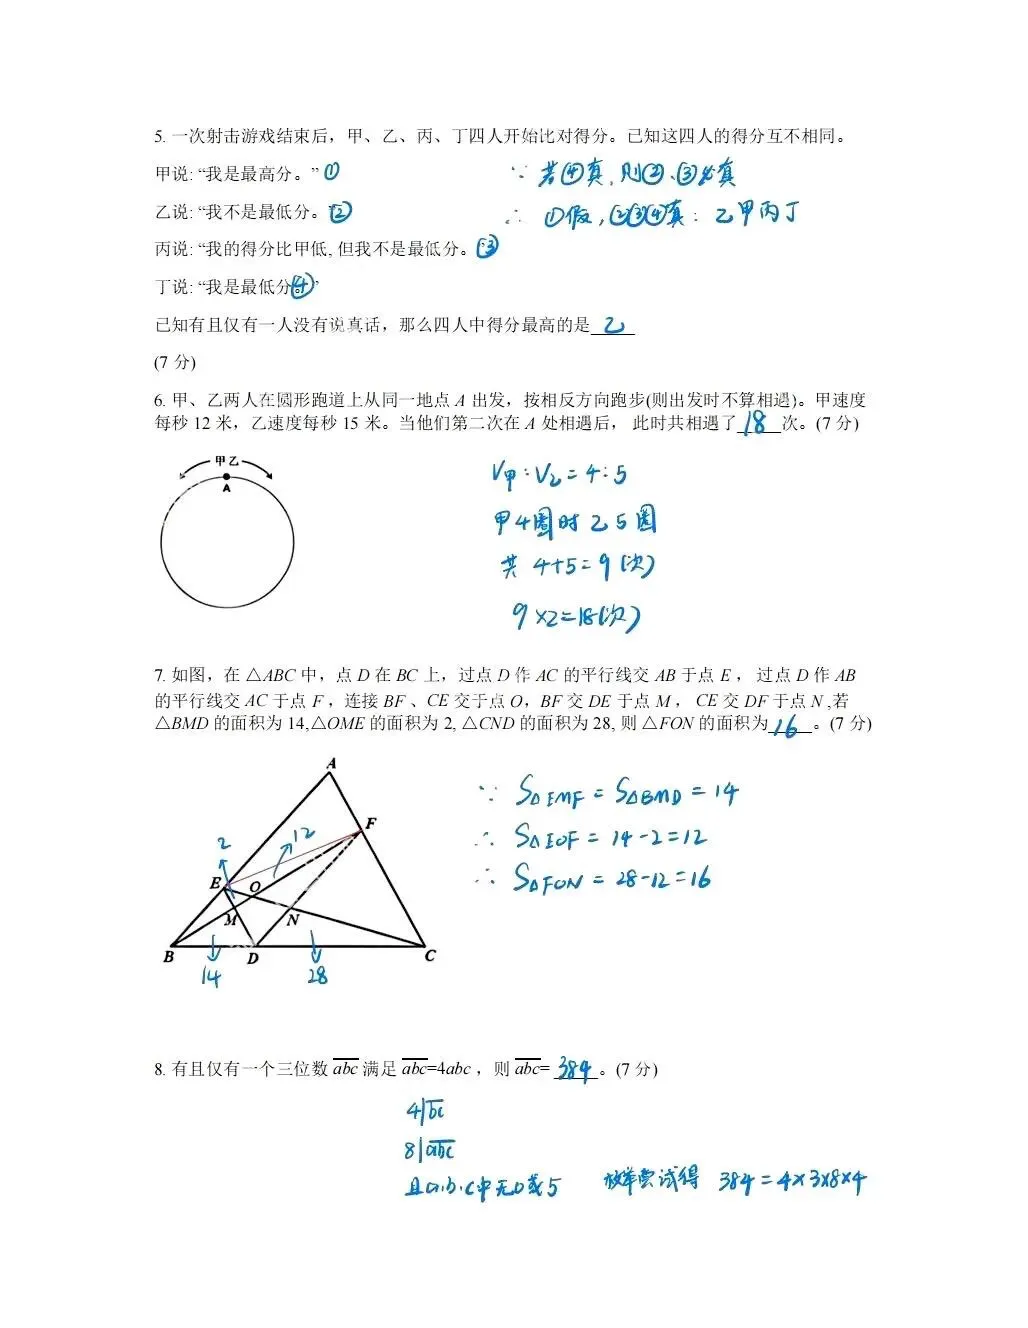 5. 一次射击游戏结束后，甲、乙、丙、丁四人开始比对得分。已知这四人的得分互不相同。
甲说: “我是最高分。” ①
∵ 若④真, 则②、③必真
乙说: “我不是最低分。” ②
∴ ①假, ②③④真: 乙甲丙丁
丙说: “我的得分比甲低, 但我不是最低分。” ③
丁说: “我是最低分。” ④
已知有且仅有一人没有说真话，那么四人中得分最高的是 乙
(7 分)
6. 甲、乙两人在圆形跑道上从同一地点 A 出发，按相反方向跑步(则出发时不算相遇)。甲速度
每秒 12 米，乙速度每秒 15 米。当他们第二次在 A 处相遇后， 此时共相遇了 18 次。(7 分)
甲 乙
A
V甲:V乙=4:5
甲4圈时乙5圈
共 4+5=9(次)
9×2=18(次)
7. 如图，在 △ABC 中，点 D 在 BC 上，过点 D 作 AC 的平行线交 AB 于点 E， 过点 D 作 AB
的平行线交 AC 于点 F，连接 BF、CE 交于点 O，BF 交 DE 于点 M， CE 交 DF 于点 N ,若
△BMD 的面积为 14,△OME 的面积为 2, △CND 的面积为 28, 则 △FON 的面积为 16 。(7 分)
A
F
12
2
E
O
M
N
B
D
C
14
28
∵ S△EMF = S△BMD = 14
∴ S△EOF = 14-2=12
∴ S△FON = 28-12=16
8. 有且仅有一个三位数 abc 满足 abc=4abc， 则 abc= 384 。(7 分)
4|bc
8|abc
且a、b、c中无0或5
枚举尝试得 384=4×3×8×4